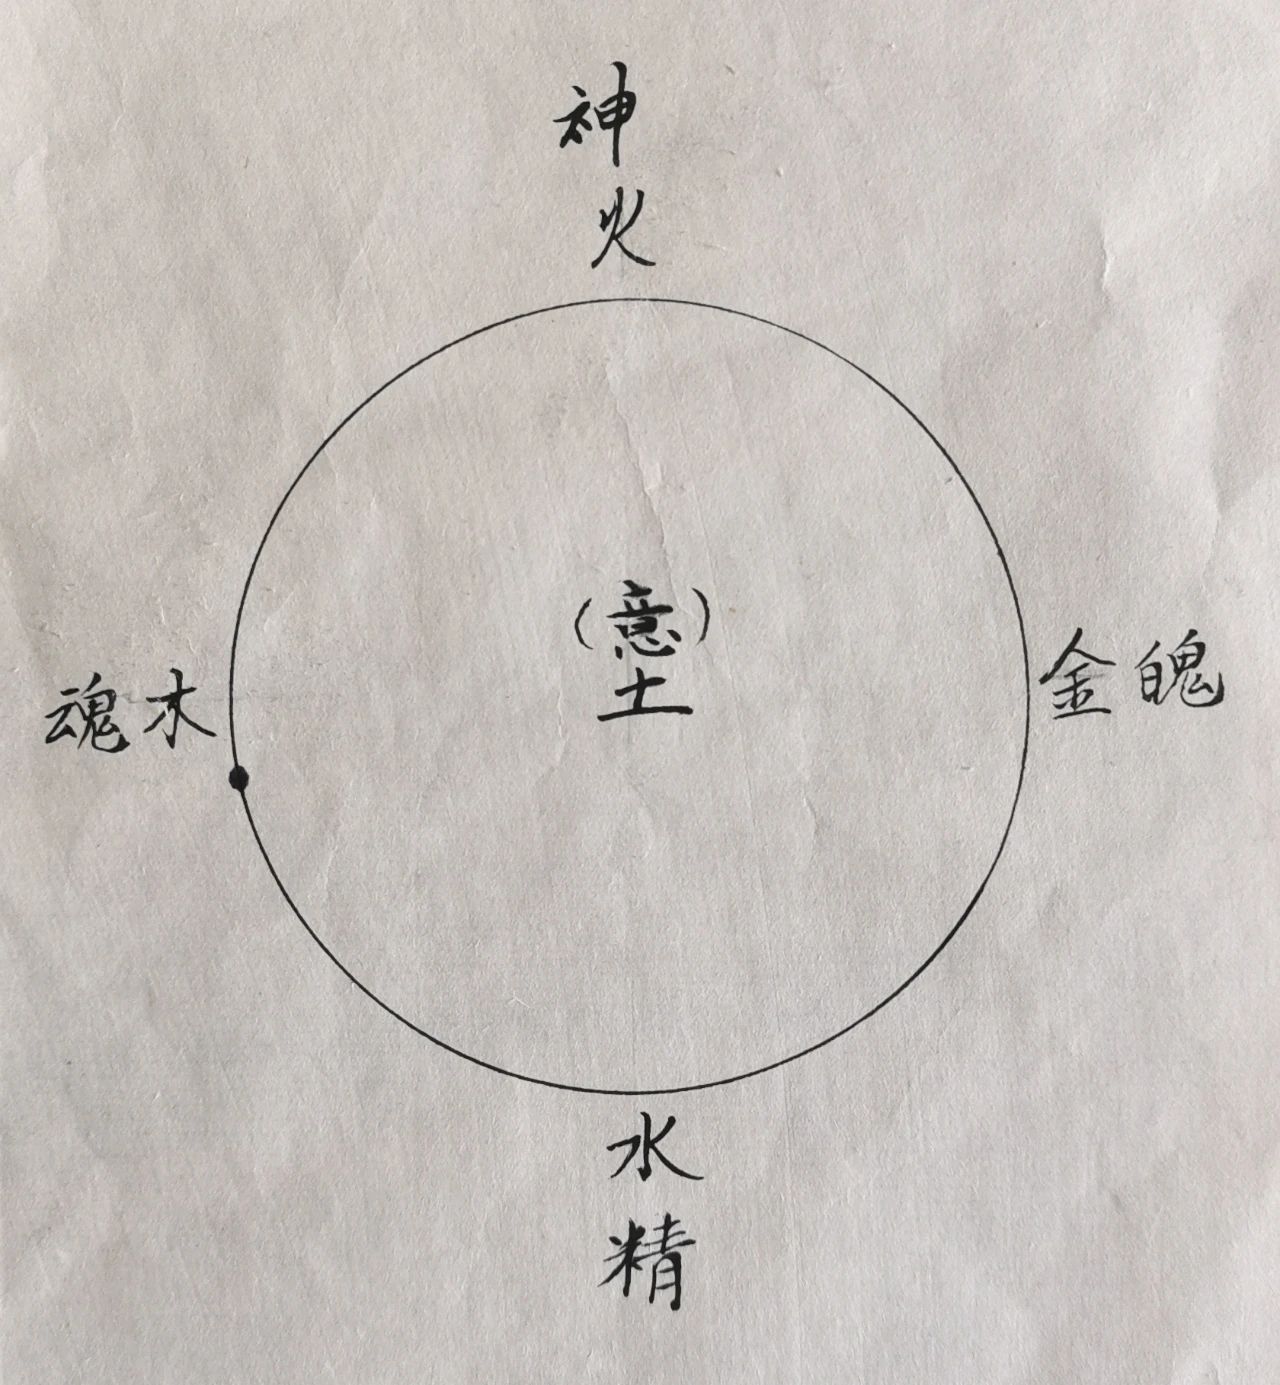 神
火
(意)
土
魂木
金魄
水
精